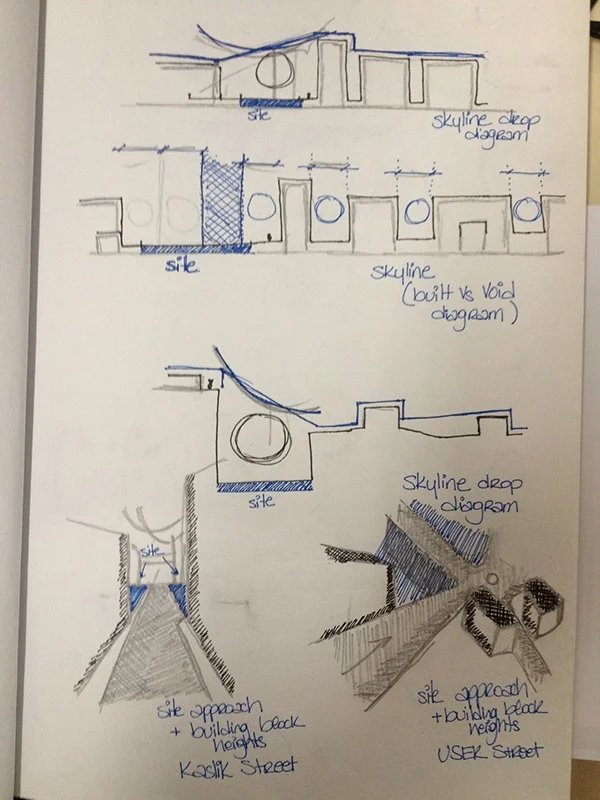 site
skyline drop
diagram
site
skyline
(built vs void
diagram)
site
skyline drop
diagram
site
site approach
+ building block
heights
Kaslik Street
site approach
+ building block
heights
USEK Street